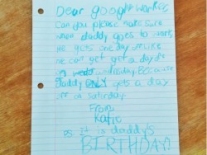 Dear google worker
Can you please make sure
when daddy goes to work
he gets one day
he can get a day
on
Daddy ONLY gets a day
off on saturday
From
Katie
PS. it is daddy's
BIRTHDAY